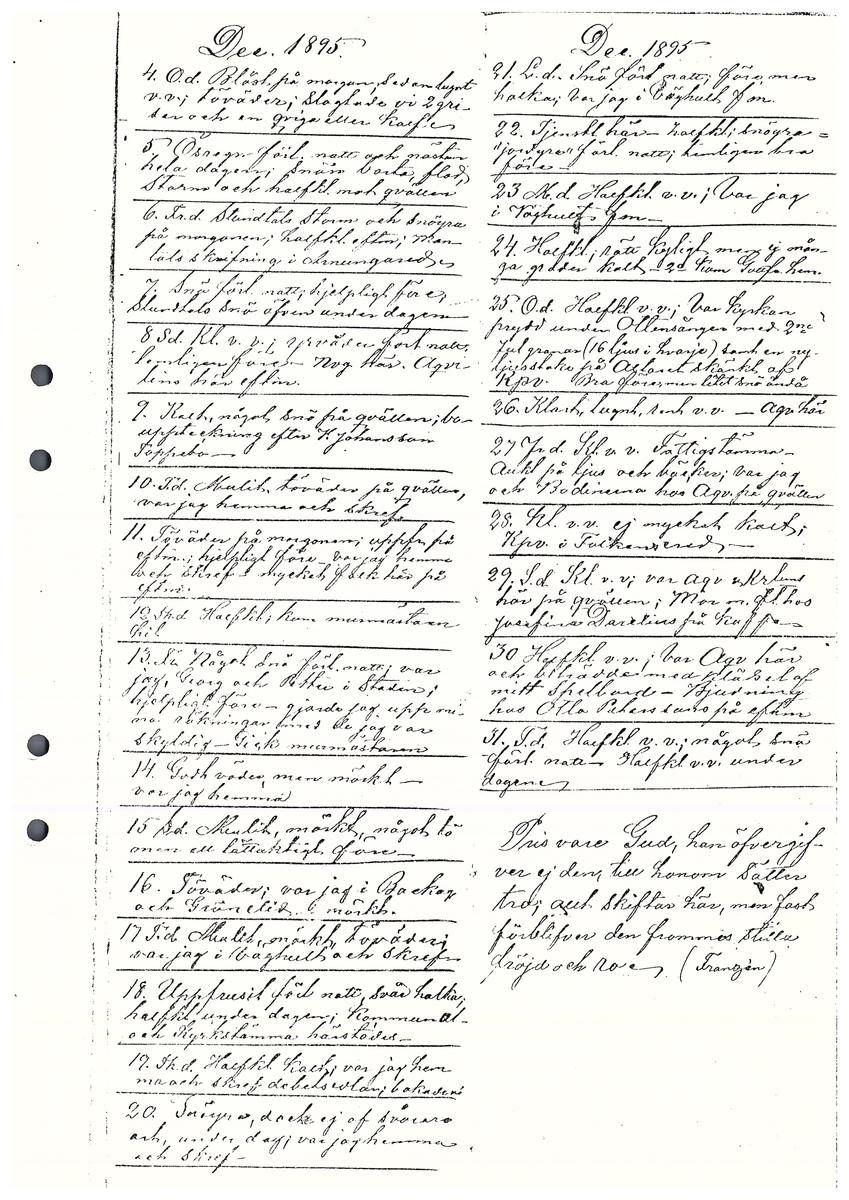 Dec. 1895.
4. O.d. Blåst på morgon, sedan lugnt
v.v.; töväder; Slagtade vi 2 gri-
sar och en qviga eller kalf
5. Ösregn förl. natt och nästan
hela dagen; snön borta, flod,
Storm och halfkl. mot qvällen
6. Fr.d. Stundtals Storm och snöyra
på morgonen; halfkl. eftm; Man-
tals skrifning i Arnungared
7. Snö förl. natt; hjelpligt före;
Stundtals Snö äfven under dagen
8 Sd. Kl. v. v.; yrväder förl. natt,
temligen före – här. Agvi-
lins här eftm.
9. Kallt, något snö på qvällen; bo-
uppteckning efter K. Johansson
Toppebo –
10. Tid. Mulit, töväder på qvällen,
var jag hemma och skref
11. Töväder på morgonen; uppfr. på
eftm.; hjelpligt före – var jag hemma
och skref – mycket folk här på
eftm.
12 Th.d Halfkl; kom murmästaren
hit
13. Något Snö förl. natt; var
jag, Georg och Petter i Staden;
hjelpligt före – gjorde jag upp mi-
na räkningar med de jag var
skyldig – Gick murmästaren
14. Godt väder, men mörkt –
var jag hemma
15 Sd. Mulit, mörkt, något tö
men ett lättaktigt före –
16. Töväder; var jag i Backap
och Grönelid. mörkt.
17 Tid Mulit, mörkt, töväder;
var jag i Väghult och skref
18. Uppfrusit förl natt, svår halka;
halfkl. under dagen; Kommunal-
och Kyrkstämma härstädes –
19. Th.d. Halfkl kallt; var jag hem
ma och skref debetsedlar; bakades
20. Snöyra, dock ej af svårare
art, under dag; var jag hemma
och skref –
Dec. 1895
21. L.d. Snö förl natt; före, men
halka; var jag i Väghult fm.
22. Tjenstl här – halfkl; snöyra =
"jordyra" förl. natt; temligen bra
före –
23 M.d. Halfkl. v.v.; Var jag
i Väghult fm –
24. Halfkl; rätt kyligt men ej mån-
ga grader kallt – Kom Gottfr. hem.
25. O.d. Halfkl v.v.; Var kyrkan
prydd under Ottesången med 2ne
Julgranar (16 ljus i hvarje) samt en ny
ljusstake på Altaret skänkt af
Kpv. Bra före, men litet snö ändå
26. Klart, lugnt, samt v.v. – Agv här
27 Fr.d. Kl. v. v. Fattigstämma –
Aukt på ljus och böcker; var jag
och Bodinerna hos Agv. på qvällen
28. Kl. v.v. ej mycket kallt;
Kpv. i Falkenered –
29. S.d. Kl v.v; var Agv o Krluns
här på qvällen; Mor m. fl. hos
Josefina Darelius på kaffe –
30 Halfkl v.v.; Var Agv här
och biträdde med klädsel af
mitt Spelbord – Bjudning
hos Otto Peterssons på eftm
31. T.d. Halfkl v.v.; något snö
förl. natt – Halfkl v.v. under
dagen
Pris vare Gud, han öfvergif-
ver ej den, till honom sätter
tro; allt skiftar här, men fast
förblifver den frommes stilla
fröjd och ro (Franzén)